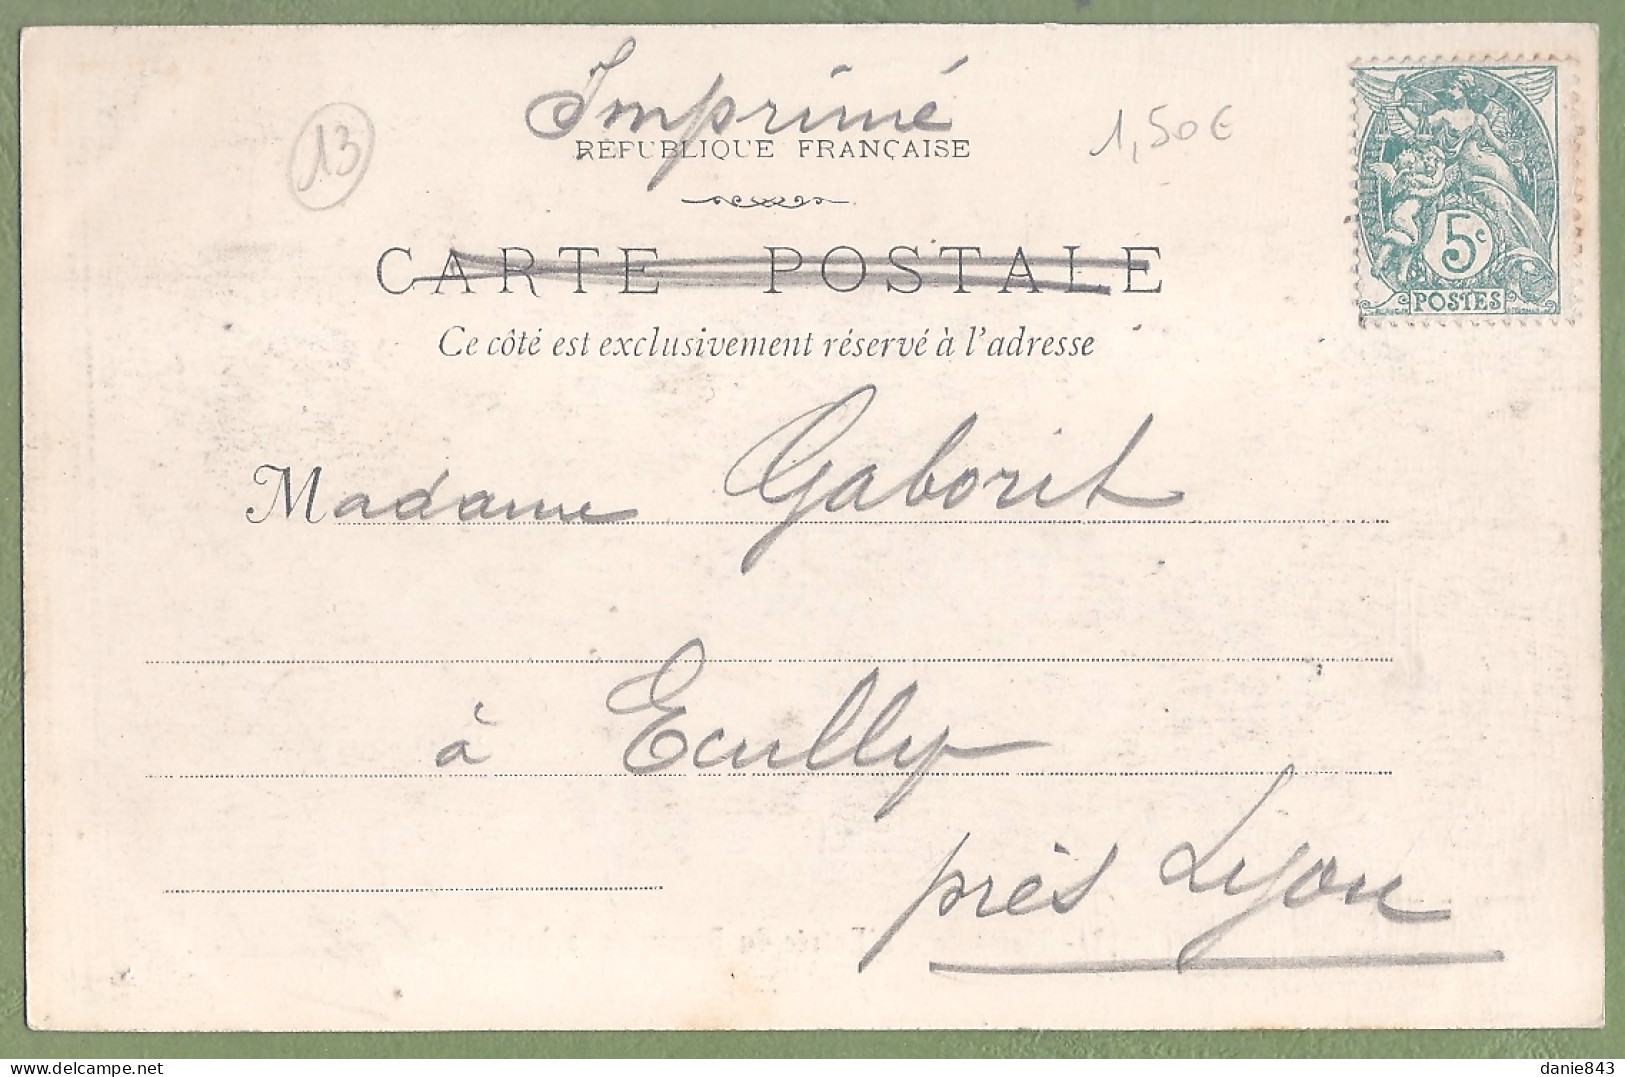 Imprimé
13
1,50€
RÉPUBLIQUE FRANÇAISE
CARTE POSTALE
5c
POSTES
Ce côté est exclusivement réservé à l'adresse
Madame Gaborit
à Ecully
près Lyon
danie843